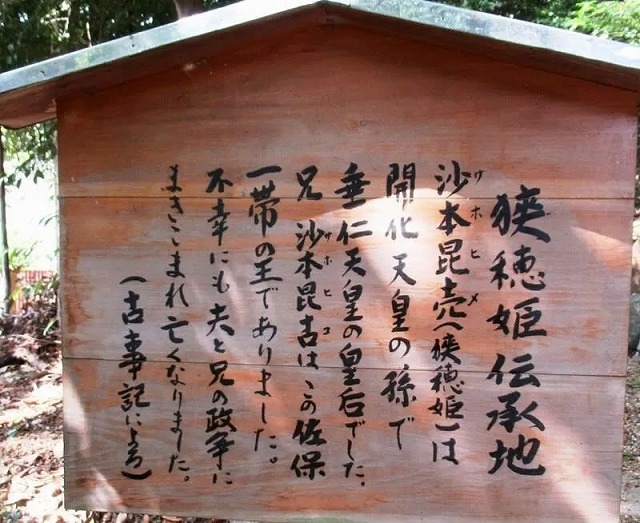 狭穂姫伝承地
沙本昆売(狭穂姫)は
サホヒメ
開化天皇の孫で
垂仁天皇の皇后でした。
兄 沙本昆古はこの佐保
サホヒコ
一帯の王でありました。
不幸にも夫と兄の政争に
まきこまれ亡くなりました。
(古事記による)